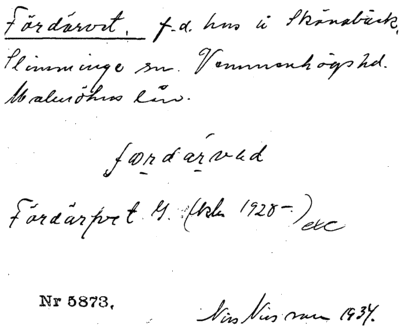 Fördärvet. f.d. hus å Skönabäck,
Slimminge sn. Vemmenhögs hd.
Malmöhus län.
færdärvad
Fördärfvet G. (bl. 1920-) exc
Nr 5873. Nils Nilsson 1934.